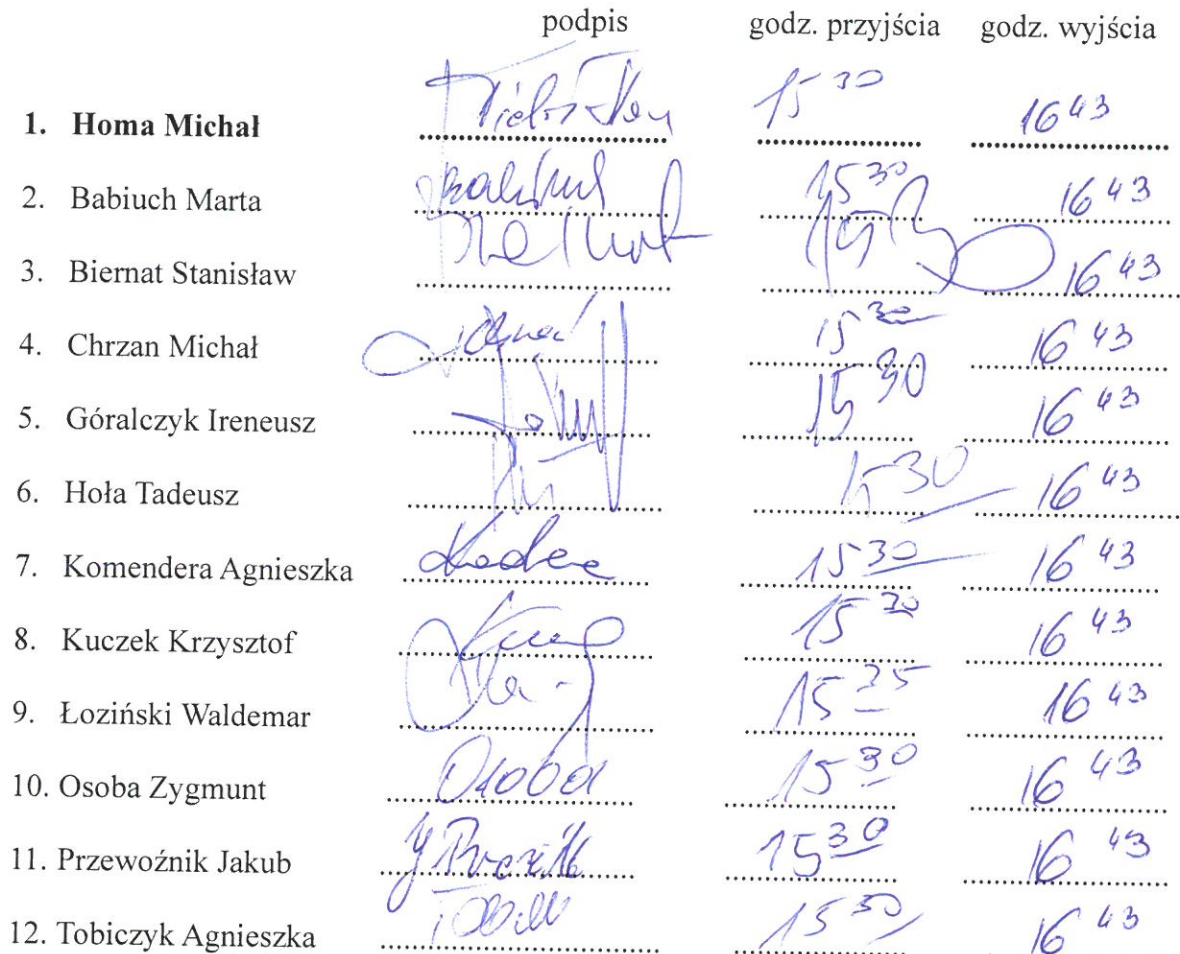 podpis godz. przyjścia godz. wyjścia
1. Homa Michał 15 30 16 43
2. Babiuch Marta 15 30 16 43
3. Biernat Stanisław 16 43
4. Chrzan Michał 15 30 16 43
5. Góralczyk Ireneusz 15 30 16 43
6. Hoła Tadeusz 15 30 16 43
7. Komendera Agnieszka 15 30 16 43
8. Kuczek Krzysztof 15 30 16 43
9. Łoziński Waldemar 15 35 16 43
10. Osoba Zygmunt Osoba 15 30 16 43
11. Przewoźnik Jakub 15 30 16 43
12. Tobiczyk Agnieszka 15 30 16 43